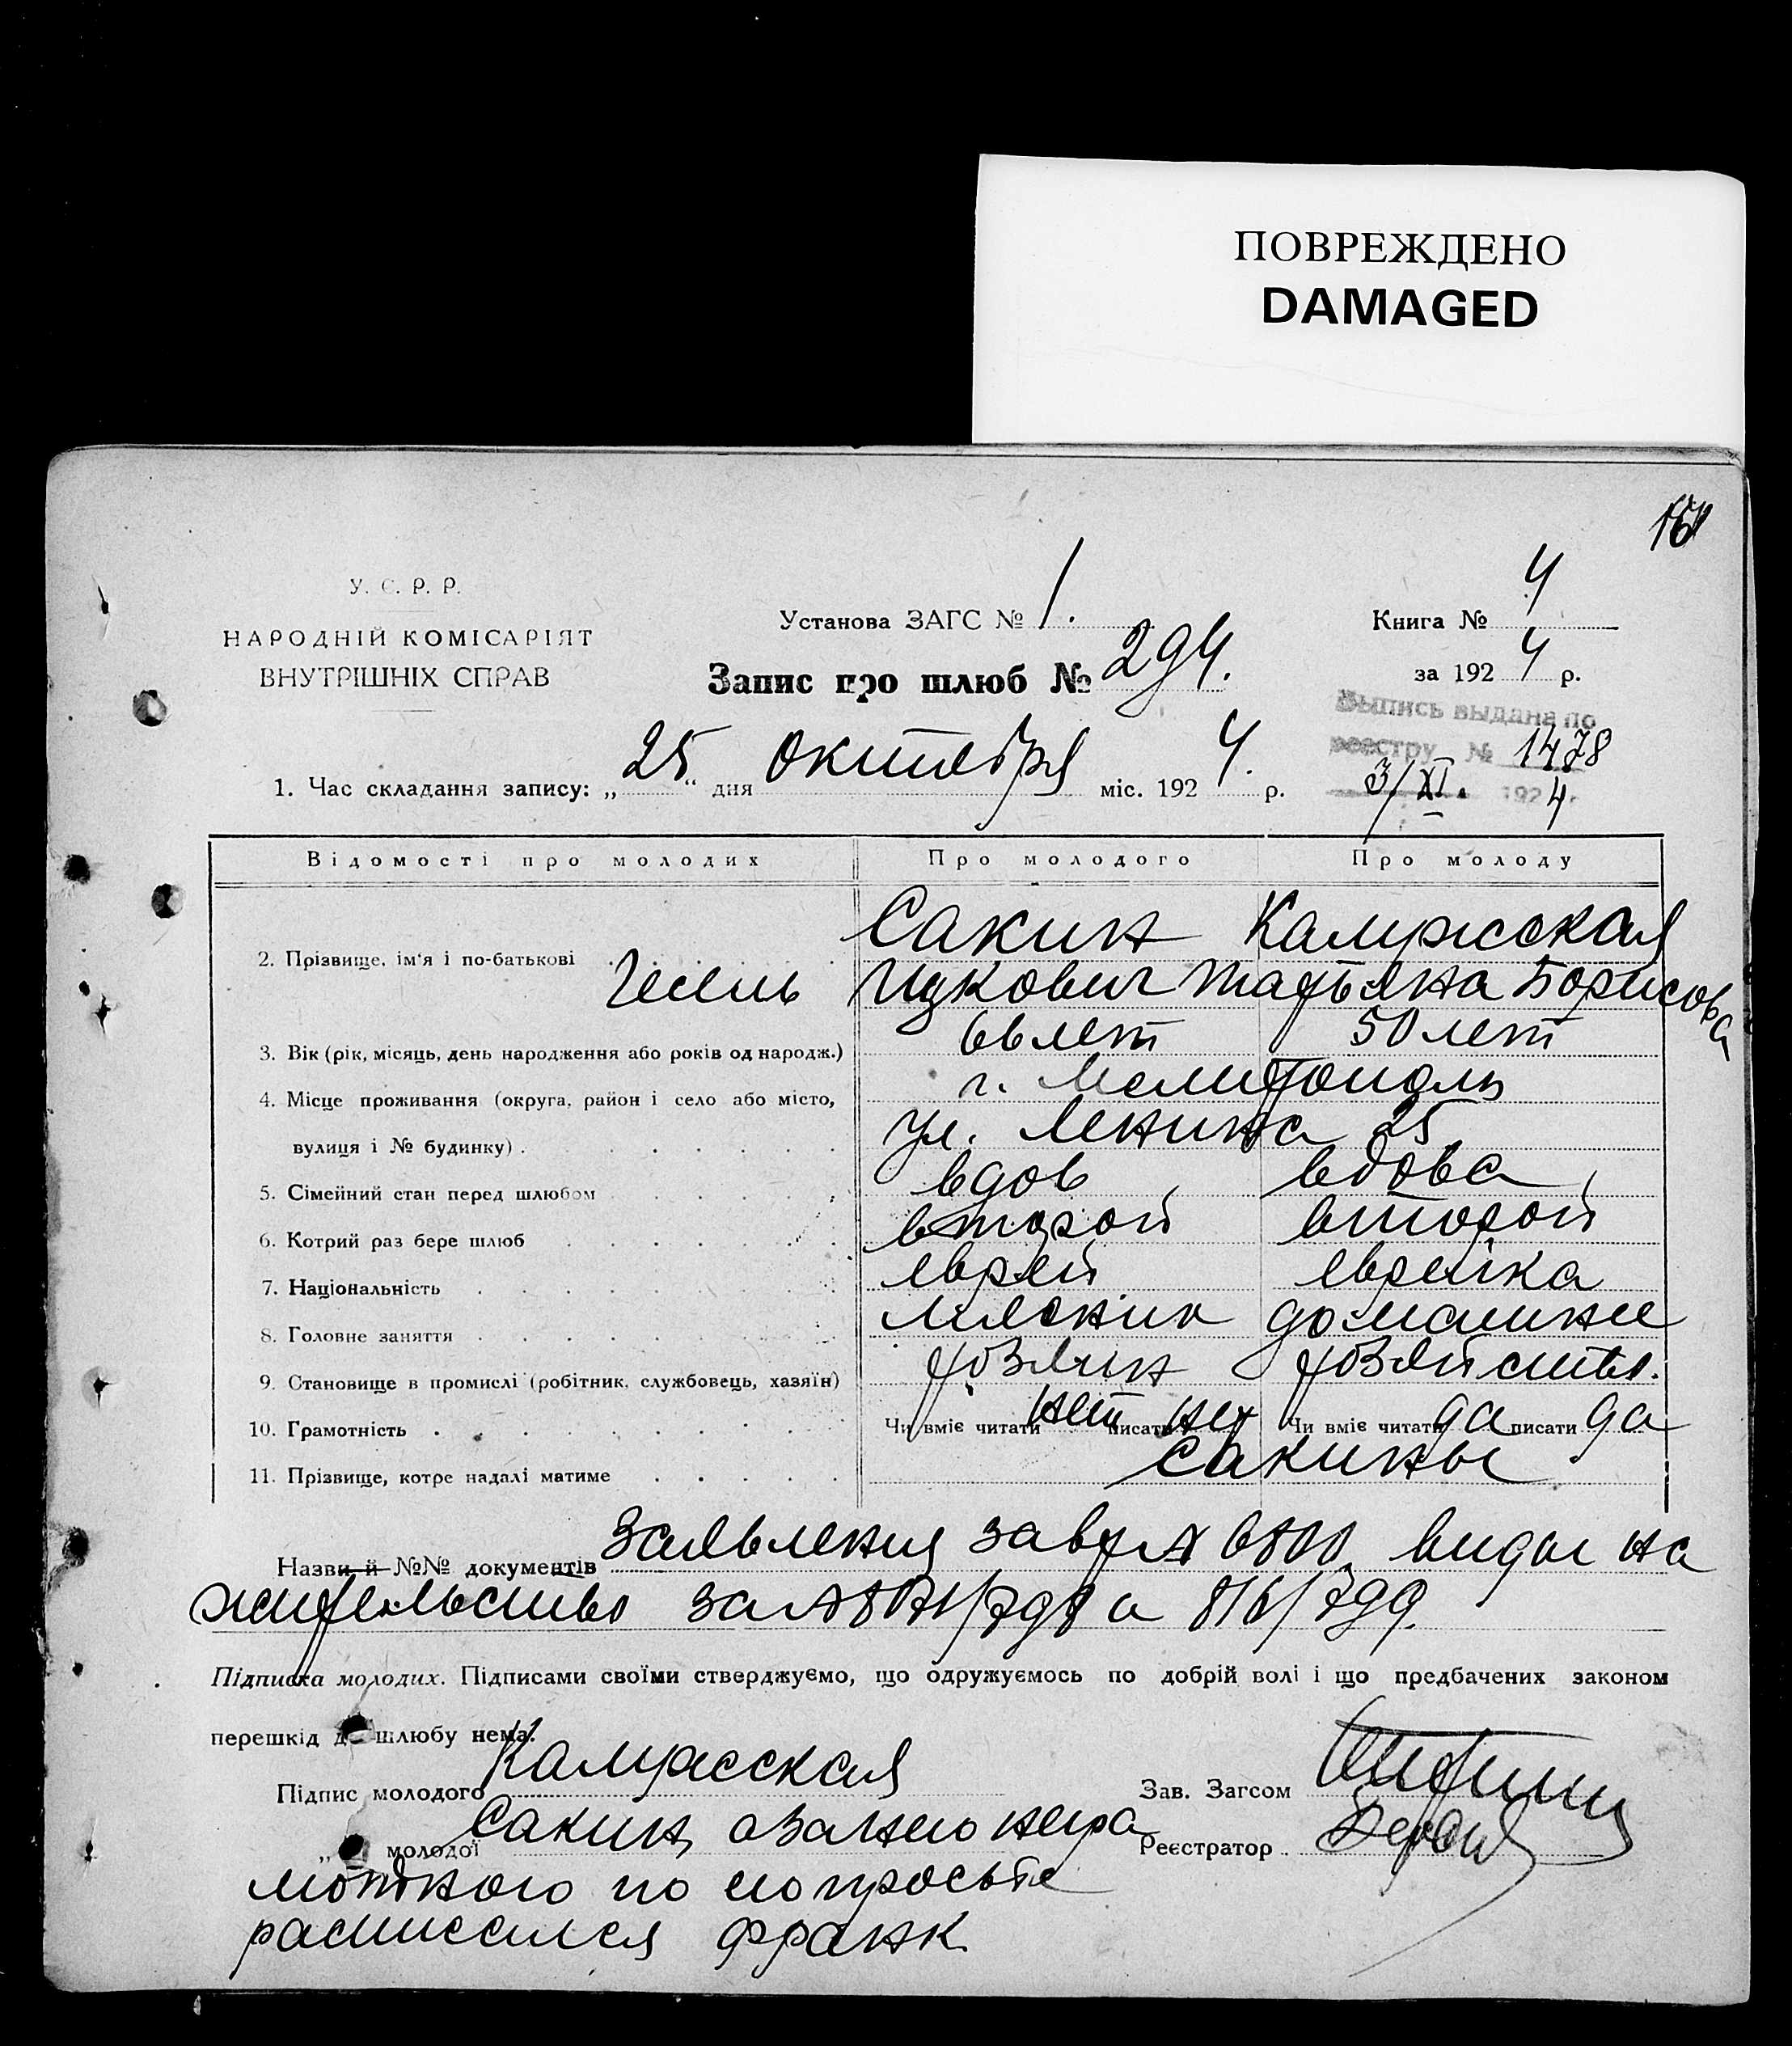 ПОВРЕЖДЕНО
DAMAGED
У. С. Р. Р.
НАРОДНІЙ КОМІСАРІЯТ
ВНУТРІШНІХ СПРАВ
Установа ЗАГС № 1.
Книга № 4
за 1924 р.
Запис про шлюб № 294.
Выпись выдана по
реестру № 1478
3/XI. 1924 г.
1. Час складання запису: „25" дня октября міс. 1924. р.
Відомості про молодих Про молодого Про молоду
2. Прізвище, ім'я і по-батькові Сакин
Ицкович Татьяна Борисова
3. Вік (рік, місяць, день народження або років од народж.) 66 лет 50 лет
4. Місце проживання (округа, район і село або місто, г. Мелитополь
вулиця і № будинку) ул. Ленина 25
5. Сімейний стан перед шлюбом вдов вдова
6. Котрий раз бере шлюб второй второй
7. Національність еврей еврейка
8. Головне заняття мясник домашнее
9. Становище в промислі (робітник, службовець, хазяїн) хозяин хозяйство.
10. Грамотність Чи вміє читати нет писати нет Чи вміє читати да писати да
11. Прізвище, котре надалі матиме Сакины
Назви й №№ документів Заявления виды на
жительство за
Підписка молодих. Підписами своїми стверджуємо, що одружуємось по добрій волі і що предбачених законом
перешкід до шлюбу нема.
Підпис молодого
Зав. Загсом
„ молодої Сакин, а за него негра
Реєстратор
мотного по его просьбе
расписался Франк